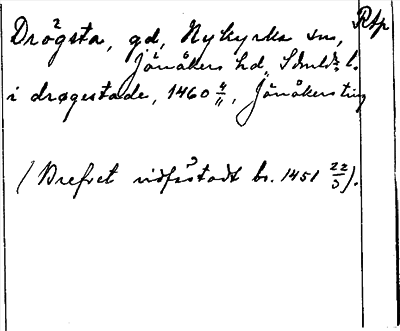 Drögsta, gd, Nykyrka sn, Rtp
Jönåkers hd, Sdmlds l.
i drøgestade, 1460 4/11, Jönåkers ting
(Brefvet vidfästadt br. 1451 22/5).